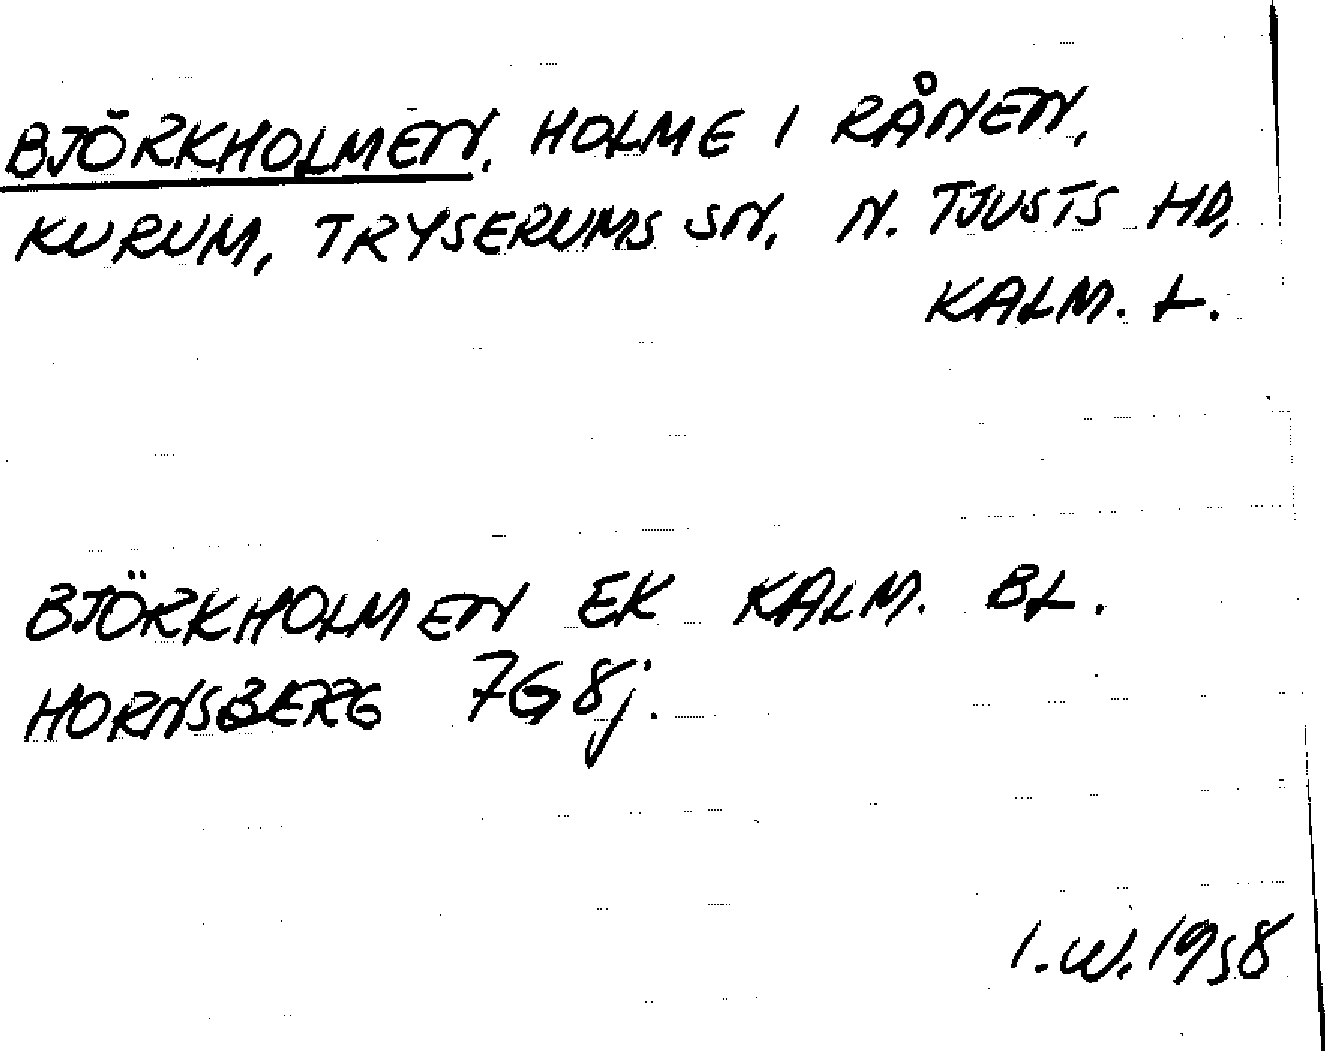 BJÖRKHOLMEN, HOLME I RÅNEN,
KURUM, TRYSERUMS SN, N. TJUSTS HD,
KALM. L.
BJÖRKHOLMEN EK KALM. BL.
HORNSBERG 7G8j.
I.W.1958